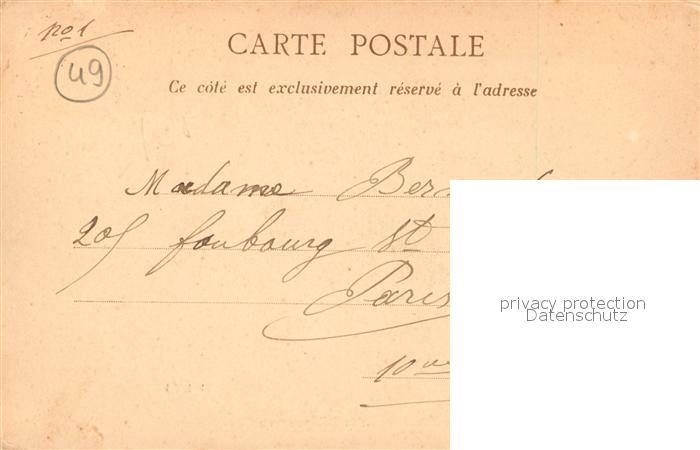 no 1
49
CARTE POSTALE
Ce côté est exclusivement réservé à l'adresse
Madame
205 foubourg St
Paris
10me
privacy protection
Datenschutz